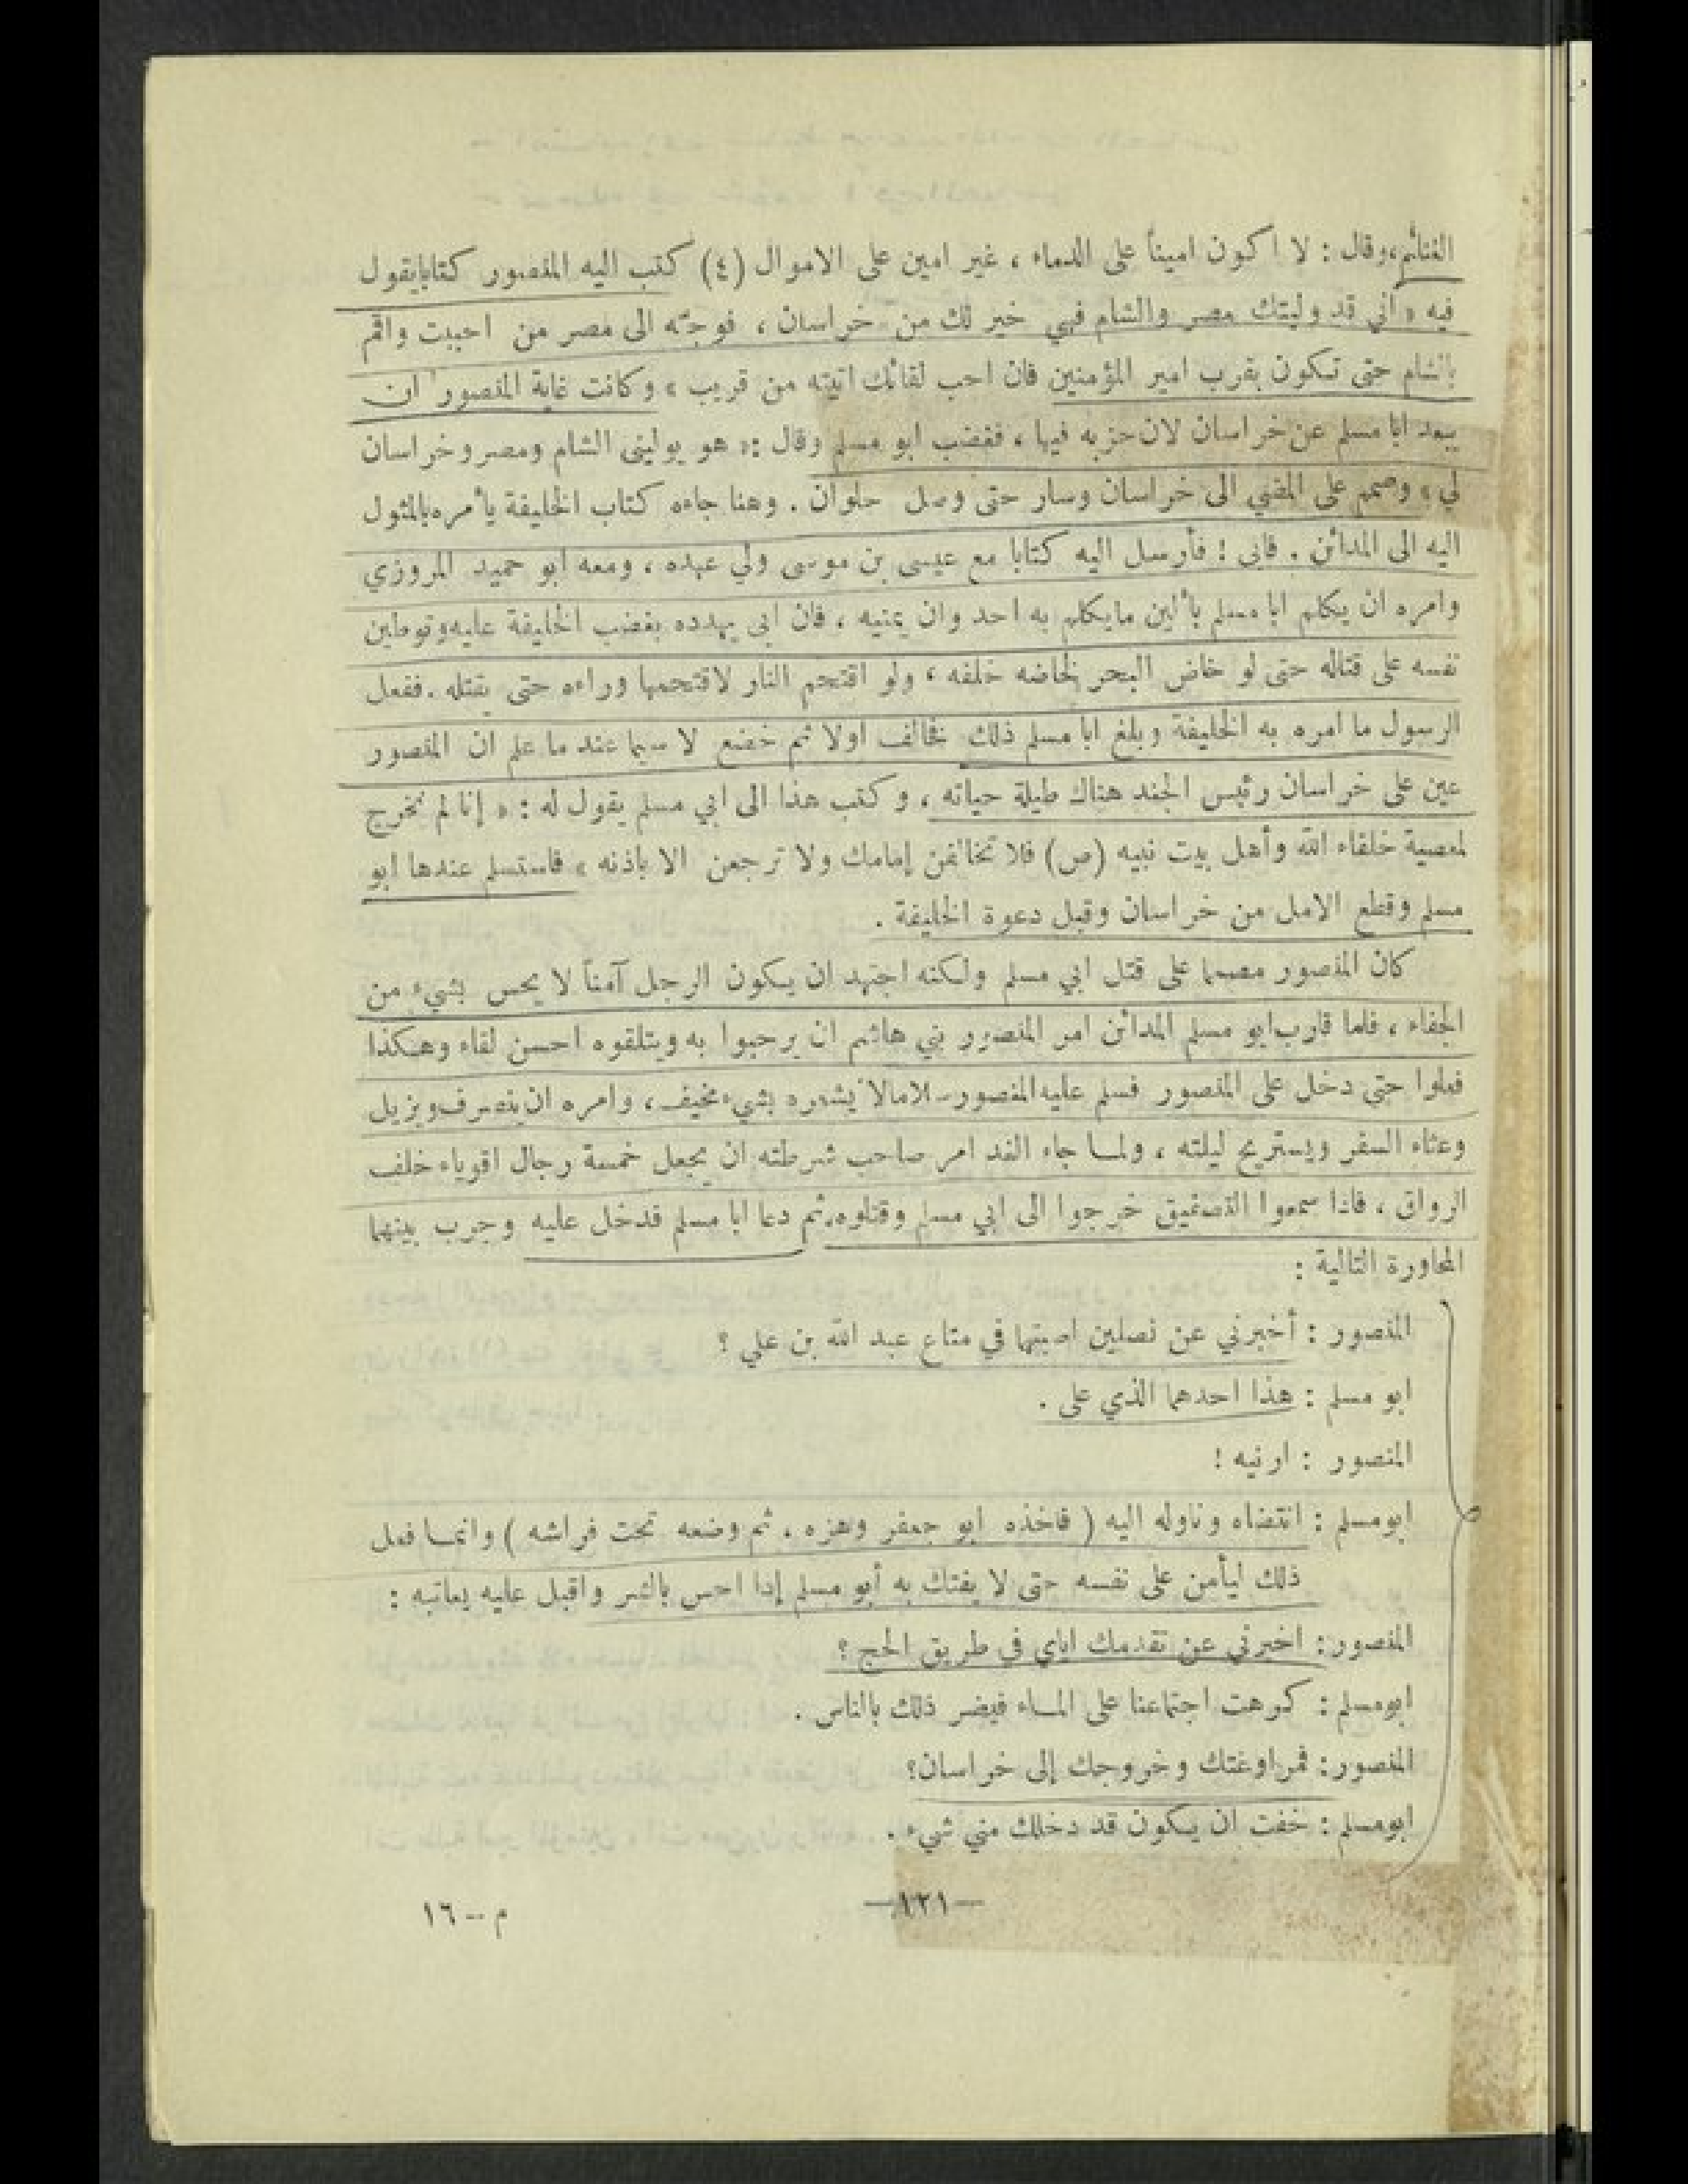 الغنائم، وقال : لا اكون اميناً على الدماء ، غير امين على الاموال (٤) كتب اليه المنصور كتابا يقول
فيه « اني قد وليتك مصر والشام فهي خير لك من خراسان ، فوجّه الى مصر من احببت واقم
بالشام حتى تكون بقرب امير المؤمنين فان احب لقائك اتيته من قريب » وكانت غاية المنصور ان
يبعد ابا مسلم عن خراسان لان حزبه فيها ، فغضب ابو مسلم وقال :« هو يوليني الشام ومصر وخراسان
لي » وصمم على المضي الى خراسان وسار حتى وصل حلوان . وهنا جاءه كتاب الخليفة يأمره بالمثول
اليه الى المدائن . فابى ! فأرسل اليه كتابا مع عيسى بن موسى ولي عهده ، ومعه ابو حميد المروزي
وامره ان يكلم ابا مسلم بألين ما يكلم به احد وان يمنيه ، فان ابى يهدده بغضب الخليفة عليه وتوطين
نفسه على قتاله حتى لو خاض البحر لخاضه خلفه ، ولو اقتحم النار لاقتحمها وراءه حتى يقتله . ففعل
الرسول ما امره به الخليفة وبلغ ابا مسلم ذلك فخالف اولا ثم خضع لا سيما عند ما علم ان المنصور
عين على خراسان رئيس الجند هناك طيلة حياته ، وكتب هذا الى ابي مسلم يقول له : « إنا لم نخرج
لمعصية خلفاء الله وأهل بيت نبيه (ص) فلا تخالفن إمامك ولا ترجعن الا باذنه » فاستسلم عندها ابو
مسلم وقطع الامل من خراسان وقبل دعوة الخليفة .
كان المنصور مصمما على قتل ابي مسلم ولكنه اجتهد ان يكون الرجل آمناً لا يحس بشيء من
الجفاء ، فلما قارب ابو مسلم المدائن امر المنصور بني هاشم ان يرحبوا به ويتلقوه احسن لقاء وهكذا
فعلوا حتى دخل على المنصور فسلم عليه المنصور سلاما لا يشعره بشيء مخيف ، وامره ان ينصرف ويزيل
وعثاء السفر ويستريح ليلته ، ولما جاء الغد امر صاحب شرطته ان يجعل خمسة رجال اقوياء خلف
الرواق ، فاذا سمعوا التصفيق خرجوا الى ابي مسلم وقتلوه، ثم دعا ابا مسلم فدخل عليه وجرب بينهما
المحاورة التالية :
المنصور : أخبرني عن نصلين اصبتهما في متاع عبد الله بن علي ؟
ابو مسلم : هذا احدهما الذي على .
المنصور : ارنيه !
ابومسلم : انتضاه وناوله اليه ( فاخذه ابو جعفر وهزه ، ثم وضعه تحت فراشه ) وانما فعل
ذلك ليأمن على نفسه حتى لا يفتك به أبو مسلم إذا احس بالشر واقبل عليه يعاتبه :
المنصور : اخبرني عن تقدمك اياي في طريق الحج ؟
ابومسلم : كرهت اجتماعنا على الماء فيضر ذلك بالناس .
المنصور : فمراوغتك وخروجك إلى خراسان؟
ابومسلم : خفت ان يكون قد دخلك مني شيء .
—١٢١—
م — ١٦